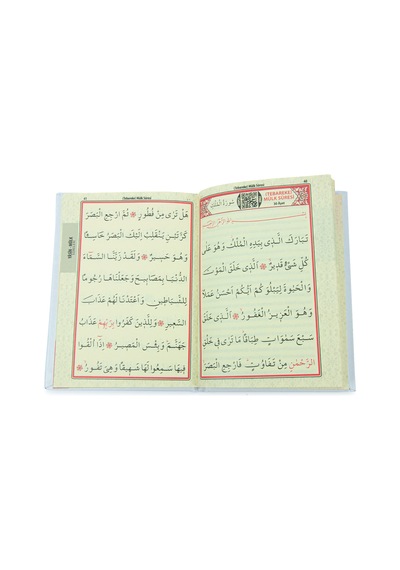 (TEBAREKE)
MÜLK SÛRESİ
سُورَةُ الْمُلْكِ
تَبَارَكَ الَّذٖي بِيَدِهِ الْمُلْكُ وَهُوَ عَلٰى
كُلِّ شَيْءٍ قَدٖيرٌ ❁ اَلَّذٖي خَلَقَ الْمَوْتَ
وَالْحَيٰوةَ لِيَبْلُوَكُمْ اَيُّكُمْ اَحْسَنُ عَمَلًا
وَهُوَ الْعَزٖيزُ الْغَفُورُ ❁ اَلَّذٖي خَلَقَ
سَبْعَ سَمٰوَاتٍ طِبَاقًا مَا تَرٰى فٖي خَلْقِ
الرَّحْمٰنِ مِنْ تَفَاوُتٍ فَارْجِعِ الْبَصَرَ
(Tebareke) Mülk Sûresi
هَلْ تَرٰى مِنْ فُطُورٍ ❁ ثُمَّ ارْجِعِ الْبَصَرَ
كَرَّتَيْنِ يَنْقَلِبْ اِلَيْكَ الْبَصَرُ خَاسِئًا
وَهُوَ حَسٖيرٌ ❁ وَلَقَدْ زَيَّنَّا السَّمَاءَ
الدُّنْيَا بِمَصَابٖيحَ وَجَعَلْنَاهَا رُجُومًا
لِلشَّيَاطٖينِ وَاَعْتَدْنَا لَهُمْ عَذَابَ
السَّعٖيرِ ❁ وَلِلَّذٖينَ كَفَرُوا بِرَبِّهِمْ عَذَابُ
جَهَنَّمَ وَبِئْسَ الْمَصٖيرُ ❁ اِذَا اُلْقُوا
فٖيهَا سَمِعُوا لَهَا شَهٖيقًا وَهِيَ تَفُورُ ❁